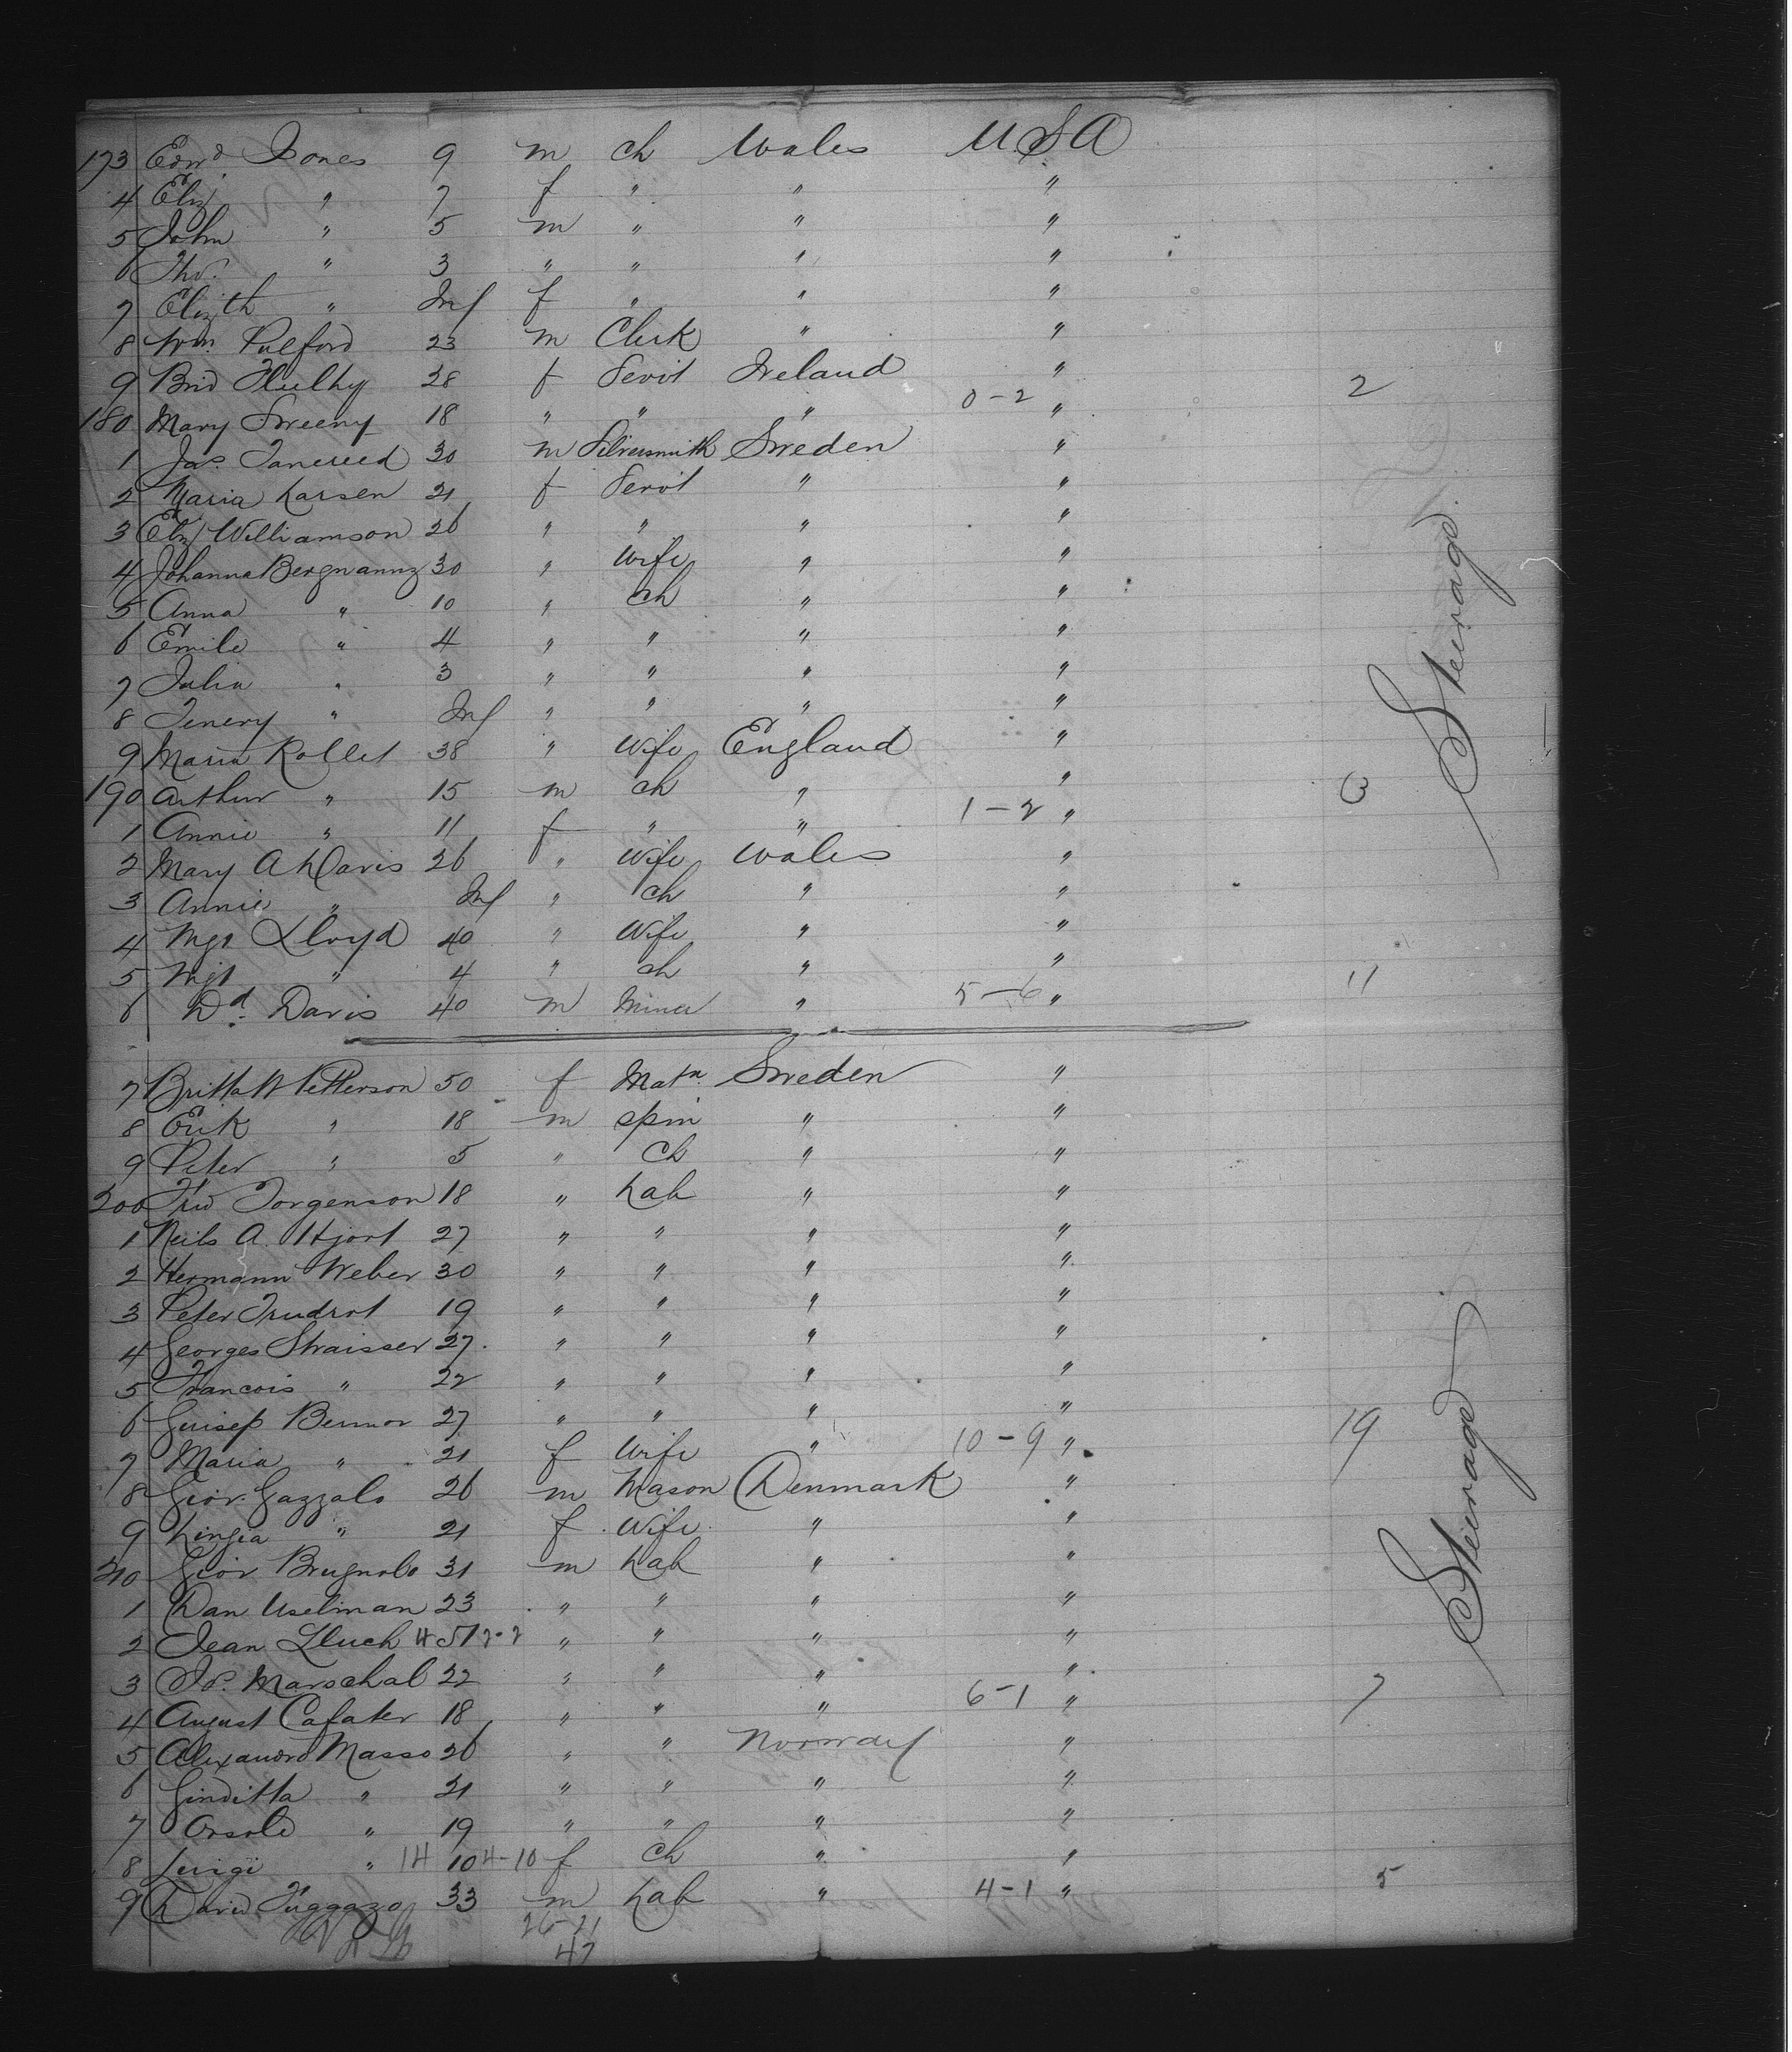 173 Edwd Jones 9 m ch Wales U.S.A
4 Eliz " 7 f " " "
5 John " 5 m " " "
6 Tho. " 3 " " " "
7 Elizth " Inf f " " "
8 Wm. Pulford 23 m Clerk " "
9 Brid 28 f Servt Ireland "
180 Mary Sweeny 18 " " " 0-2 " 2
1 Jas. Tancreed 30 m Silversmith Sweden "
2 Maria Larsen 21 f Servt " "
3 Eliz Williamson 26 " " " "
4 Johanna Bergmanny 30 " Wife " "
5 Anna " 10 " ch " "
6 Emile " 4 " " " "
7 Julia " 3 " " " "
8 Tenery " Inf " " " "
9 Maria Rollet 38 " Wife England "
190 Arthur " 15 m ch " " 3
1 Annie " 11 f " " 1-2 "
2 Mary A Davis 26 " Wife Wales "
3 Annie " Inf " ch " "
4 Mgt Lloyd 40 " Wife " "
5 Mgt " 4 " ch " " 11
6 Dd. Davis 40 m Miner " 5-6 "
Steerage
7 Britta W Petterson 50 f Matn. Sweden "
8 Erik " 18 m spin " "
9 Peter " 5 " Ch " "
200 Fred Jorgenson 18 " Lab " "
1 Neils A. Hjort 27 " " " "
2 Hermann Weber 30 " " " "
3 Peter Trudrot 19 " " " "
4 Georges Straisser 27 " " " "
5 Francois " 22 " " " "
6 Guisep 27 " " " " 19
7 Maria " 21 f Wife " 10-9 "
8 Giov. Gazzalo 26 m Mason Denmark "
9 " 21 f Wife " "
210 Giov Brugnolo 31 m Lab " "
1 Dan Uselman 23 " " " "
2 Jean Lluch 45 " " " "
3 Js. Marschal 22 " " " "
4 August Cafater 18 " " " 6-1 " 7
5 Alexandro Masso 26 " " Norway "
6 Ginditta " 21 " " " "
7 Orsole " 19 " " " "
8 Luigi " 14 10 4-10 f ch " "
9 David Fuggazo 33 m Lab " 4-1 " 5
26-21
47
Steerage